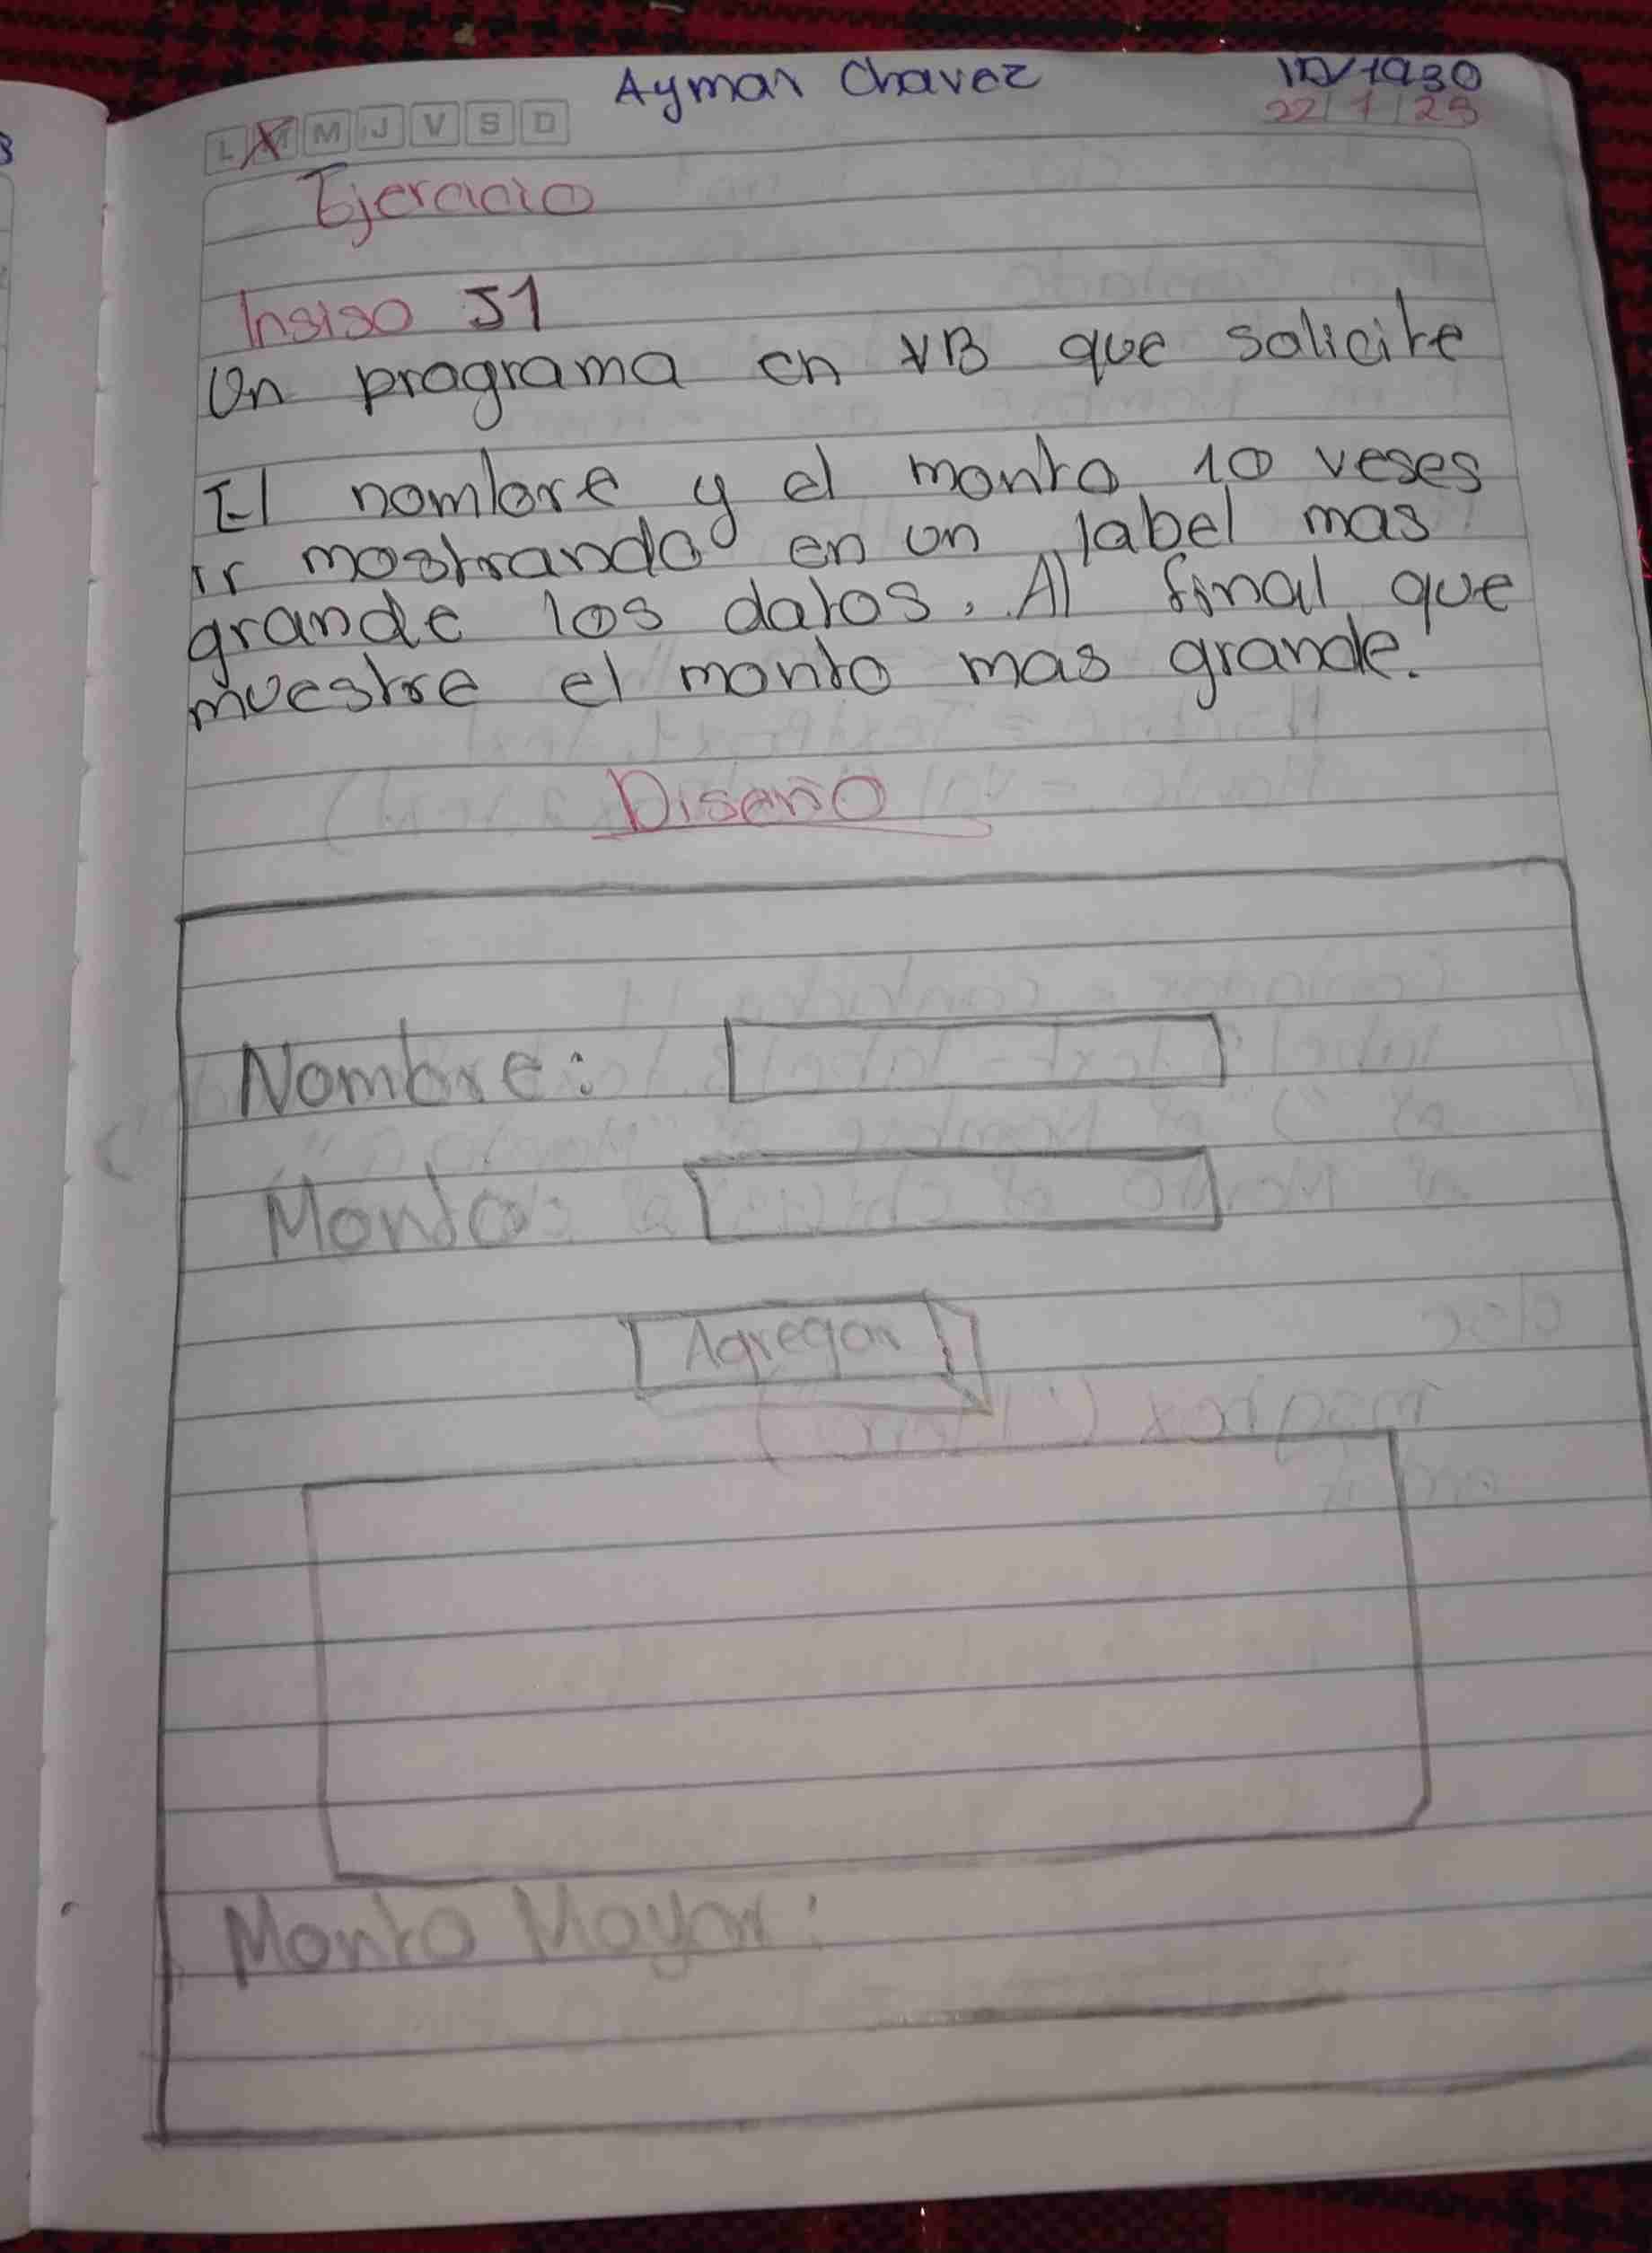 Aymar Chavez
22/1/23
L M M J V S D
Ejercicio
Insiso J1
Un programa en VB que solicite
El nombre y el monto 10 veses
ir mostrando en un label mas
grande los datos. Al final que
muestre el monto mas grande.
Diseño
Nombre:
Monto:
Agregar
Monto Mayor: